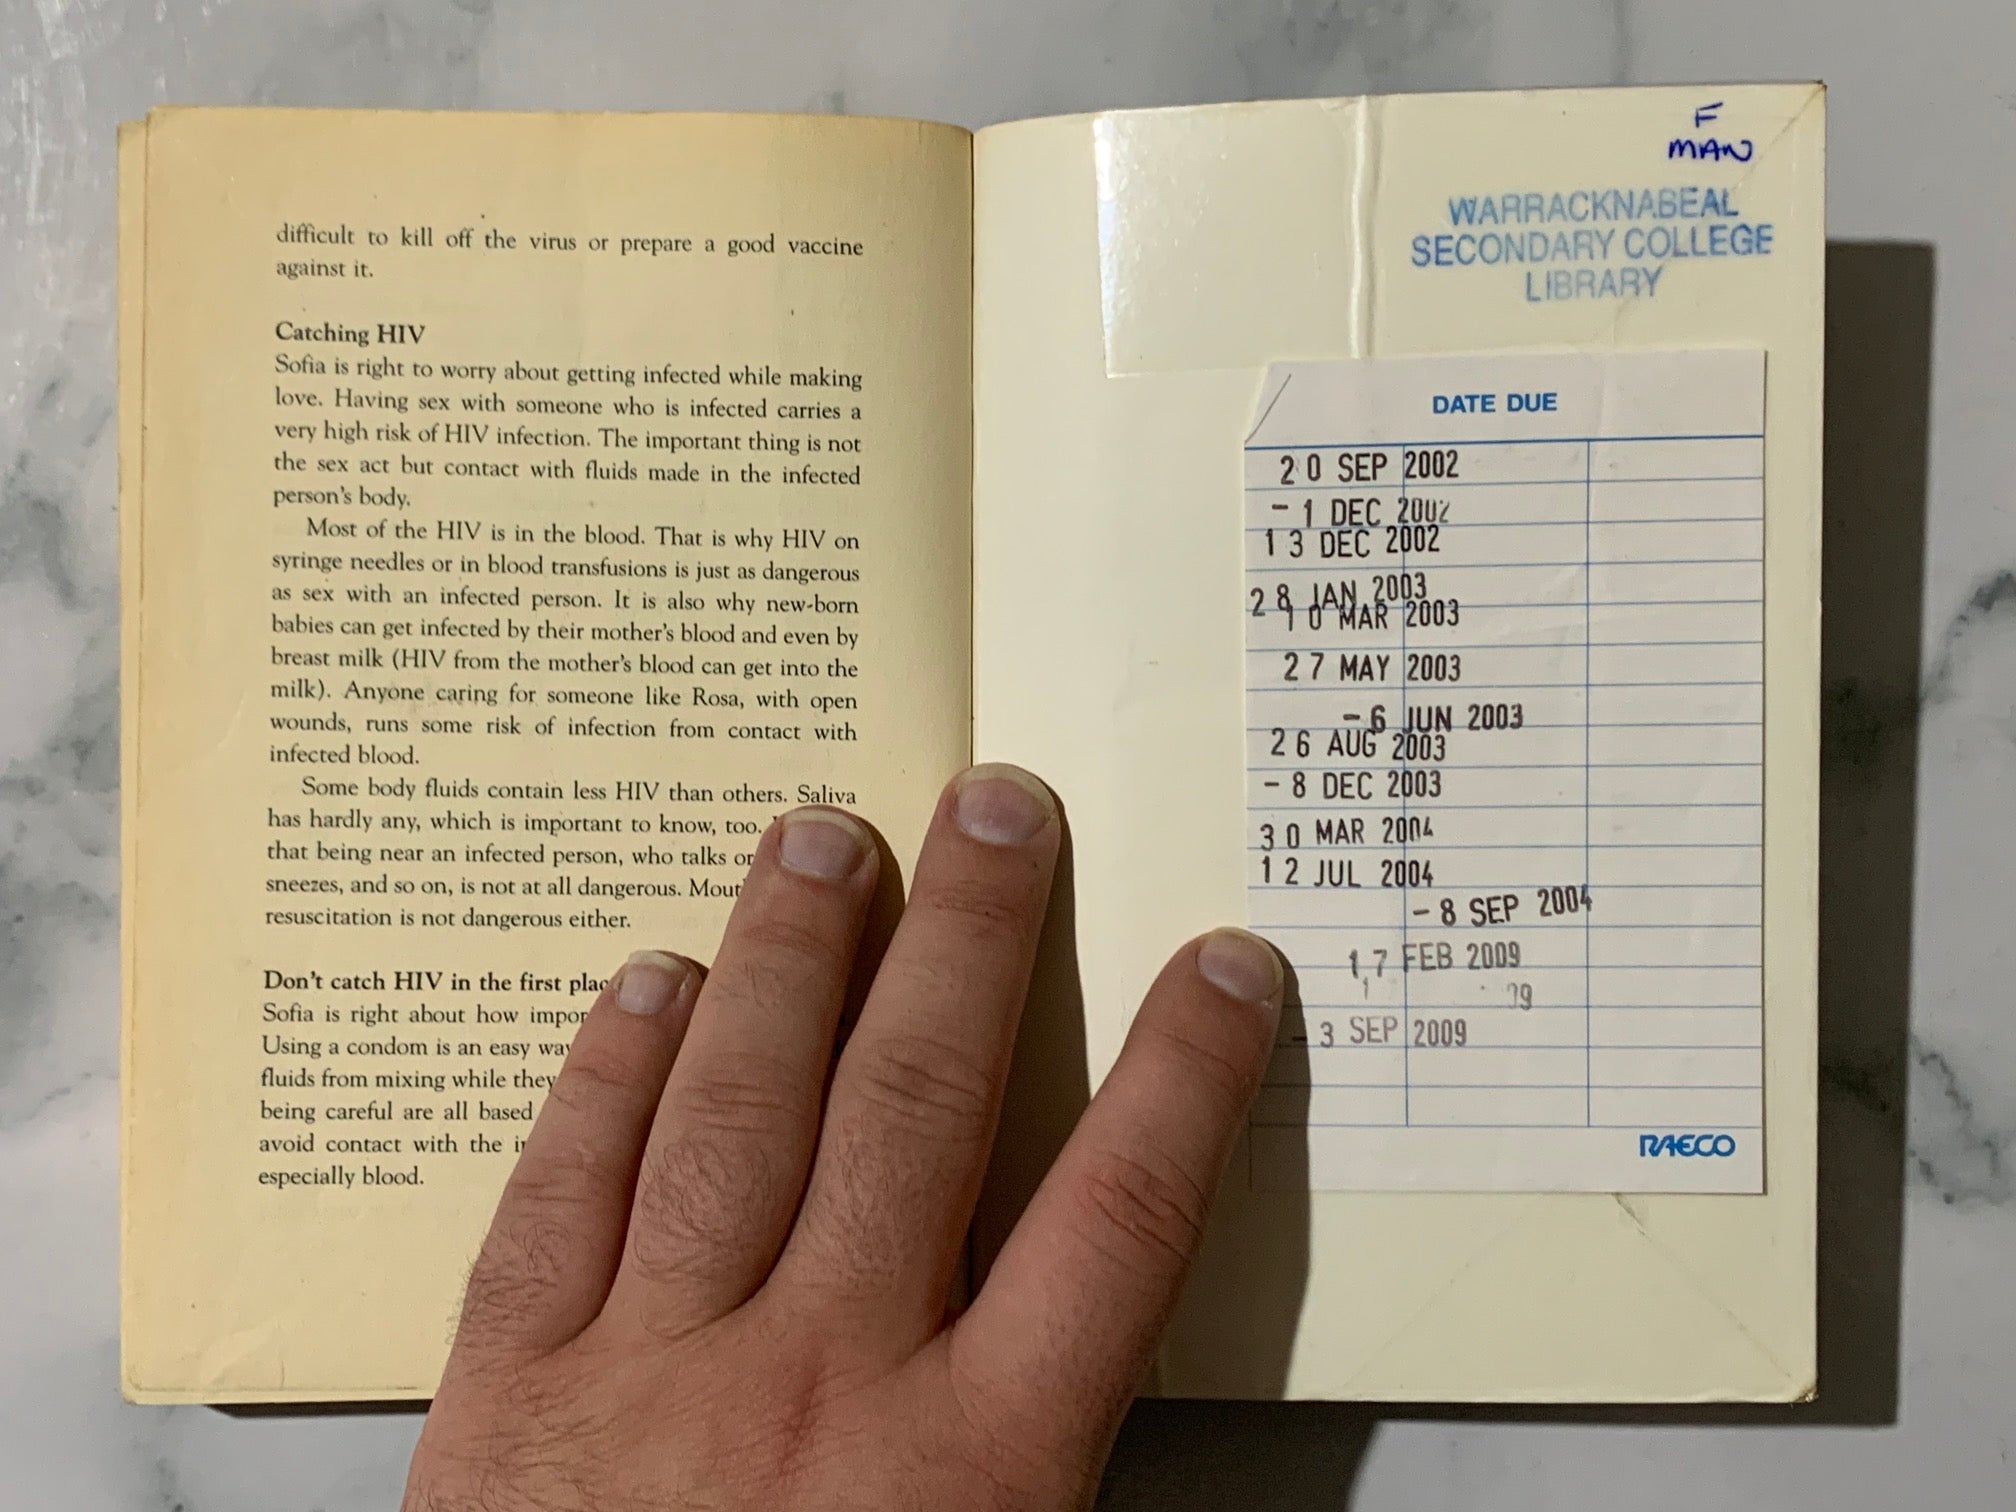 difficult to kill off the virus or prepare a good vaccine
against it.
Catching HIV
Sofia is right to worry about getting infected while making
love. Having sex with someone who is infected carries a
very high risk of HIV infection. The important thing is not
the sex act but contact with fluids made in the infected
person's body.
Most of the HIV is in the blood. That is why HIV on
syringe needles or in blood transfusions is just as dangerous
as sex with an infected person. It is also why new-born
babies can get infected by their mother's blood and even by
breast milk (HIV from the mother's blood can get into the
milk). Anyone caring for someone like Rosa, with open
wounds, runs some risk of infection from contact with
infected blood.
Some body fluids contain less HIV than others. Saliva
has hardly any, which is important to know, too.
that being near an infected person, who talks or
sneezes, and so on, is not at all dangerous.
resuscitation is not dangerous either.
Don't catch HIV in the first
Sofia is right about how
Using a condom is an easy
fluids from mixing while they
being careful are all based
avoid contact with the
especially blood.
F
MAN
WARRACKNABEAL
SECONDARY COLLEGE
LIBRARY
DATE DUE
20 SEP 2002
- 1 DEC 2002
13 DEC 2002
28 JAN 2003
10 MAR 2003
27 MAY 2003
- 6 JUN 2003
26 AUG 2003
- 8 DEC 2003
30 MAR 2004
12 JUL 2004
- 8 SEP 2004
17 FEB 2009
- 3 SEP 2009
RAECO